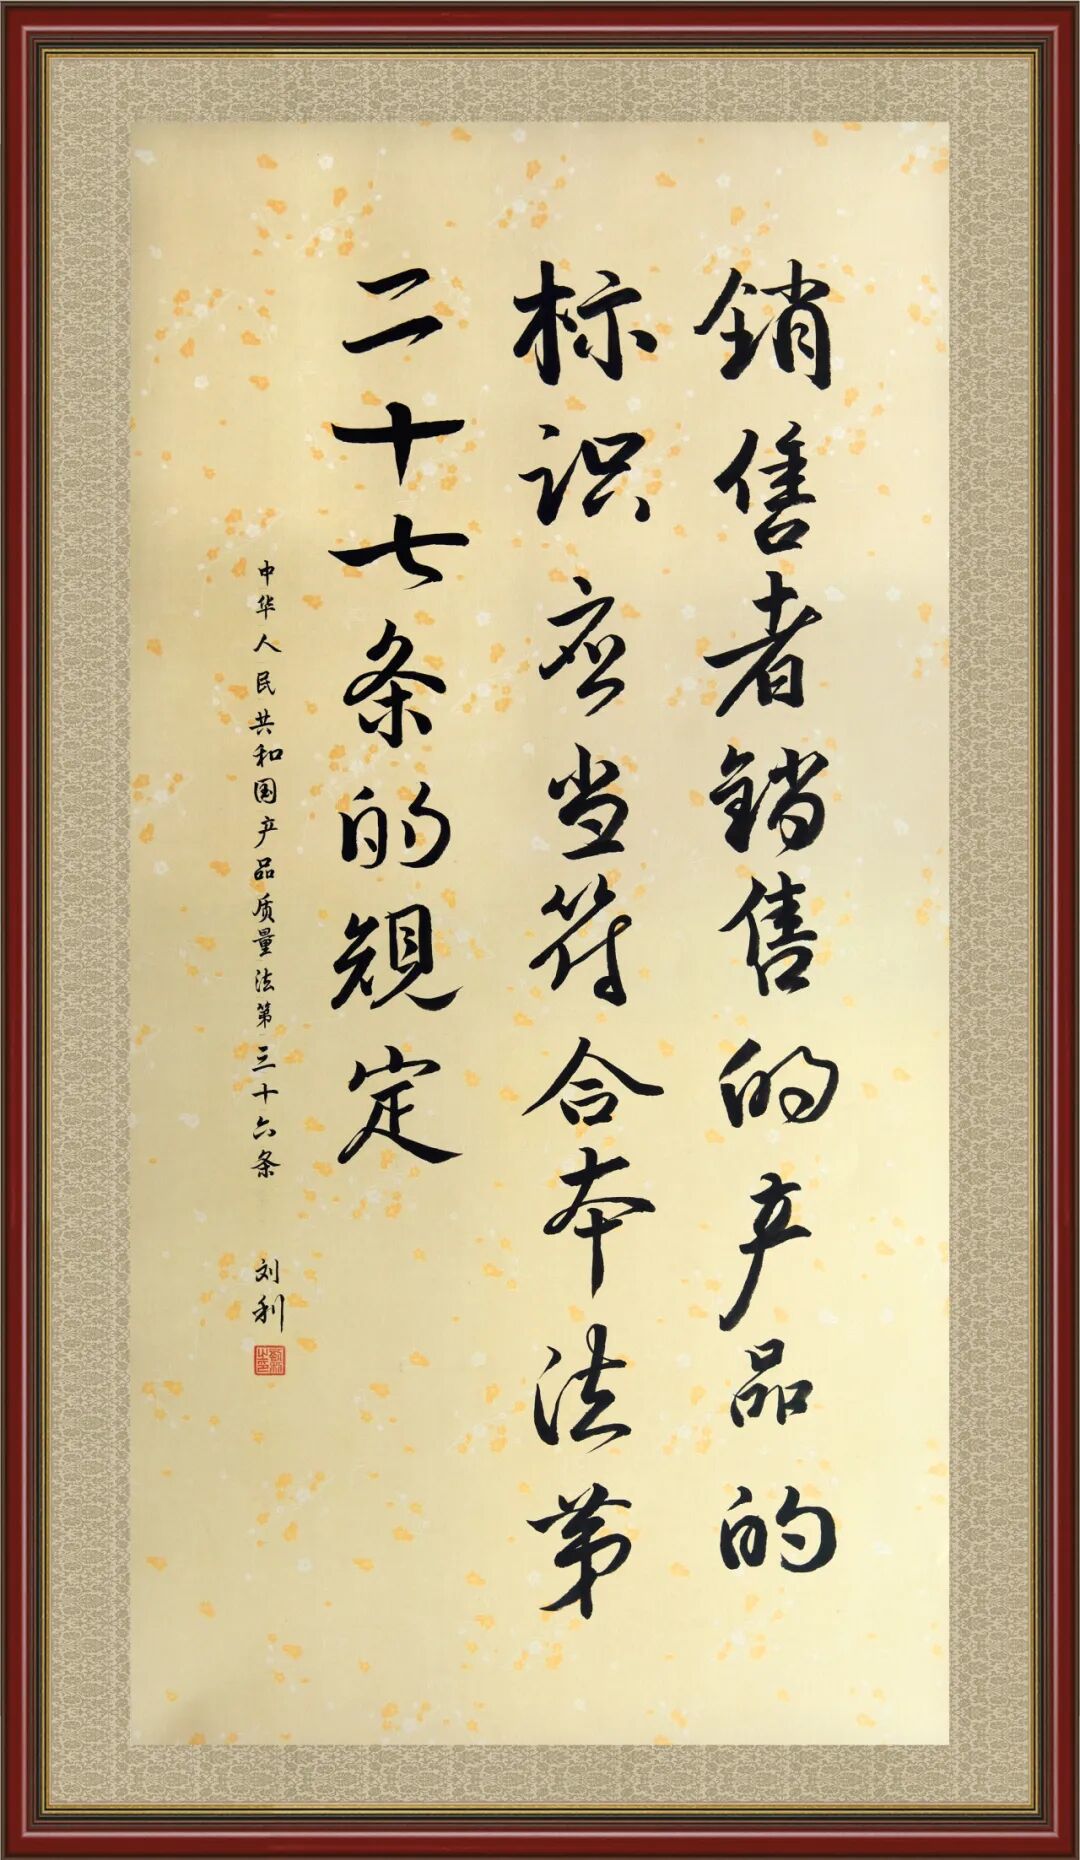 销售者销售的产品的
标识应当符合本法第
二十七条的规定
中华人民共和国产品质量法第三十六条
刘利